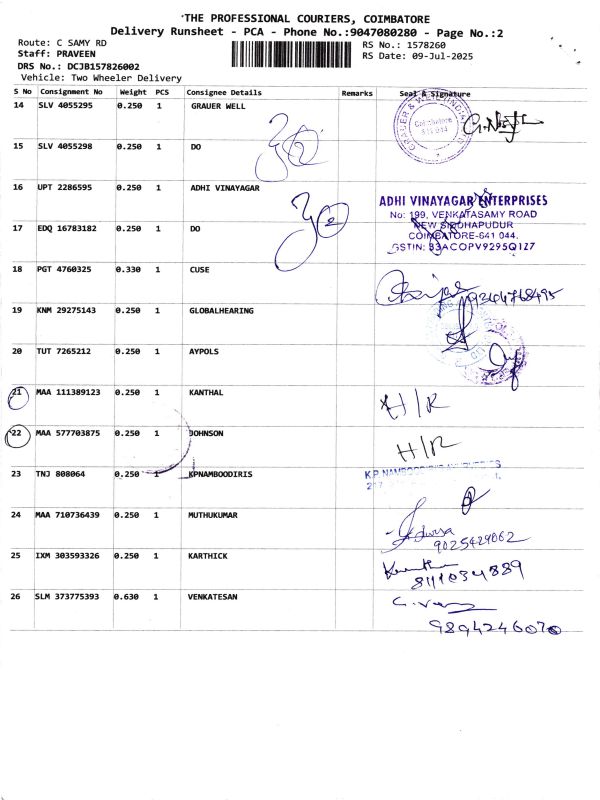 'THE PROFESSIONAL COURIERS, COIMBATORE
Delivery Runsheet - PCA - Phone No.:9047080280 - Page No.:2
Route: C SAMY RD
Staff: PRAVEEN
DRS No.: DCJB157826002
Vehicle: Two Wheeler Delivery
RS No.: 1578260
RS Date: 09-Jul-2025
S No Consignment No Weight PCS Consignee Details Remarks Seal & Signature
14 SLV 4055295 0.250 1 GRAUER WELL
15 SLV 4055298 0.250 1 DO
16 UPT 2286595 0.250 1 ADHI VINAYAGAR
ADHI VINAYAGAR ENTERPRISES
No: 199, VENKATASAMY ROAD
NEW SIDDHAPUDUR
COIMBATORE-641 044.
GSTIN: 33ACOPV9295Q1Z7
17 EDQ 16783182 0.250 1 DO
18 PGT 4760325 0.330 1 CUSE
9344768495
19 KNM 29275143 0.250 1 GLOBALHEARING
20 TUT 7265212 0.250 1 AYPOLS
21 MAA 111389123 0.250 1 KANTHAL H/R
22 MAA 577703875 0.250 1 JOHNSON H/R
23 TNJ 808064 0.250 1 KPNAMBOODIRIS
24 MAA 710736439 0.250 1 MUTHUKUMAR
9025429062
25 IXM 303593326 0.250 1 KARTHICK
8111034889
26 SLM 373775393 0.630 1 VENKATESAN
9894246070